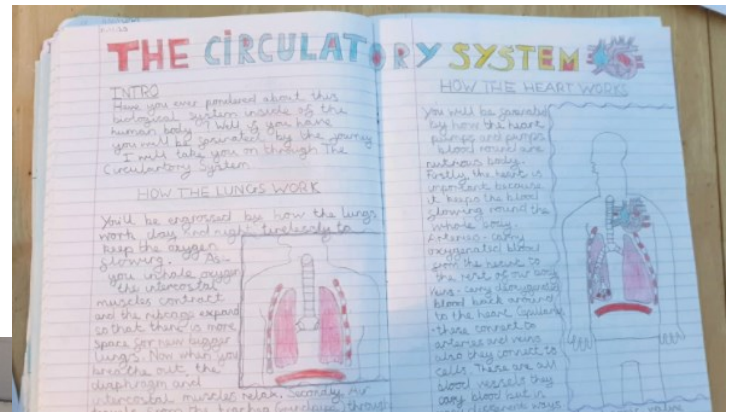 THE CIRCULATORY SYSTEM
INTRO
Have you ever pondered about this
biological system inside of the
human body? Well if you have
you will be by the journey
I will take you on through The
Circulartory System
HOW THE LUNGS WORK
You'll be engrossed by how the lungs
work day and night tirelessly to
keep the oxygen
flowing. As
you inhale oxygen
the intercostal
muscles contract
and the ribcage expand
so that there is more
space for new bigger
lungs. Now when you
breathe out, the
diaphragm and
intercostal muscles relax. Secondly, Air
through
HOW THE HEART WORKS
You will be
by how the heart
pumps and pumps
blood round are
body.
Firstly, the heart is
important because
it keeps the blood
flowing round the
whole body.
Arteries - carry
oxygenated blood
from the heart to
the rest of our body
Veins - carry
blood back around
to the heart
- these connect to
arteries and veins
also they connect to
cells. These are all
blood vessels they
carry blood but in
different ways